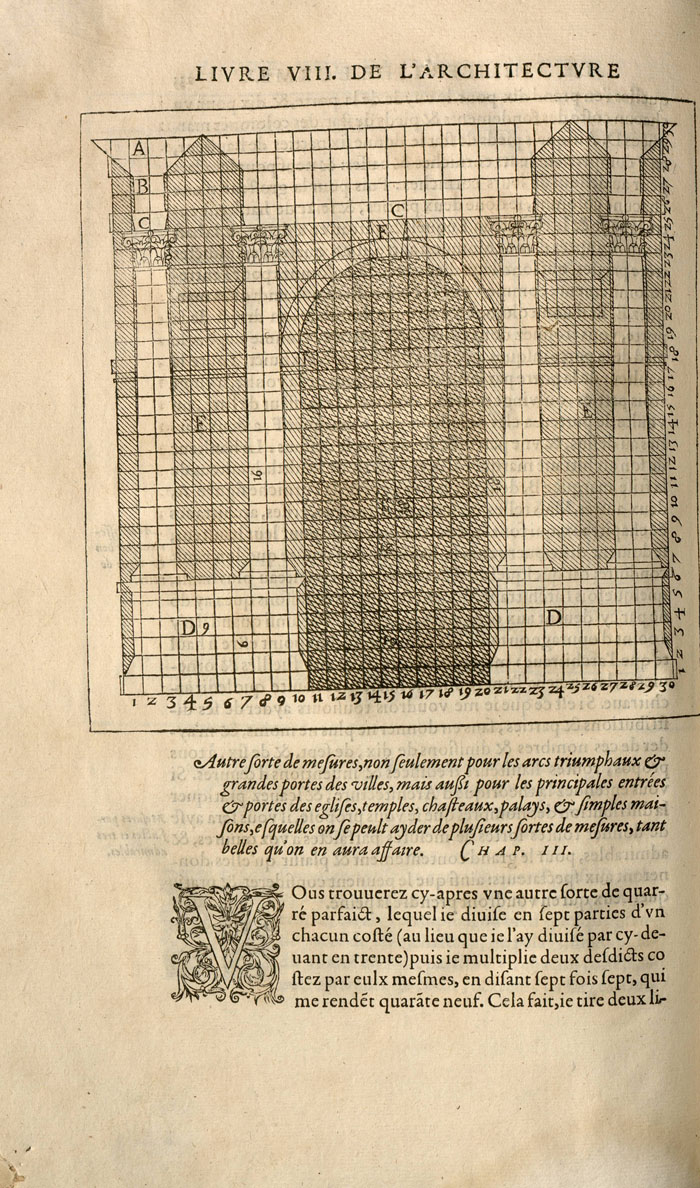 LIVRE VIII. DE L'ARCHITECTVRE
A
B
C
C
F
E
E
16
D 9
9
D
1 2 3 4 5 6 7 8 9 10 11 12 13 14 15 16 17 18 19 20 21 22 23 24 25 26 27 28 29 30
1 2 3 4 5 6 7 8 9 10 11 12 13 14 15 16 17 18 19 20 21 22 23 24 25 26 27 28 29 30
Autre sorte de mesures, non seulement pour les arcs triumphaux &
grandes portes des villes, mais aussi pour les principales entrées
& portes des eglises, temples, chasteaux, palays, & simples mai-
sons, esquelles on se peult ayder de plusieurs sortes de mesures, tant
belles qu'on en aura affaire. CHAP. III.
VOus trouuerez cy-apres vne autre sorte de quar-
ré parfaict, lequel ie diuise en sept parties d'vn
chacun costé (au lieu que ie l'ay diuisé par cy-de-
uant en trente) puis ie multiplie deux desdicts co
stez par eulx mesmes, en disant sept fois sept, qui
me rendẽt quarãte neuf. Cela fait, ie tire deux li-